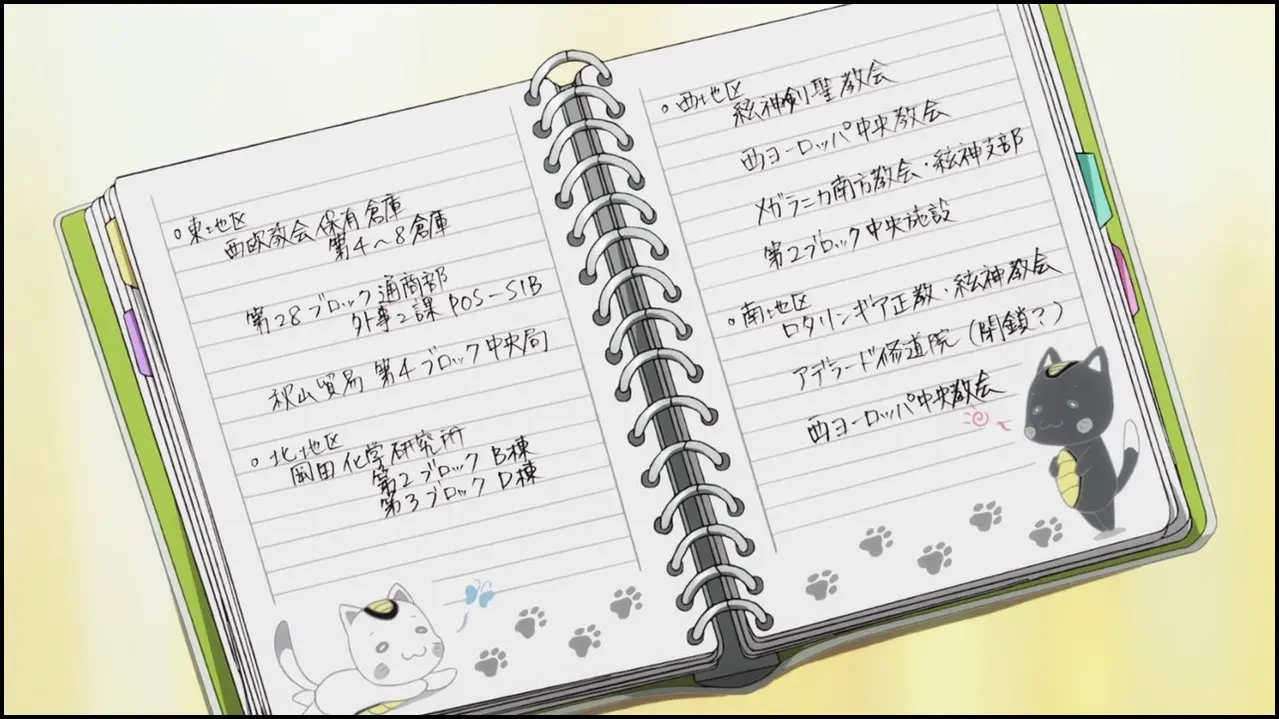 ○東地区
西欧教会保有倉庫
第4~8倉庫
第28ブロック通商部
外事2課 POS-SIB
秋山貿易 第4ブロック中央局
○北地区
岡田化学研究所
第2ブロック B棟
第3ブロック D棟
○西地区
絃神剣聖教会
西ヨーロッパ中央教会
メガラニカ南方教会・絃神支部
第2ブロック中央施設
○南地区
ロタリンギア正教・絃神教会
アデラード修道院(閉鎖?)
西ヨーロッパ中央教会